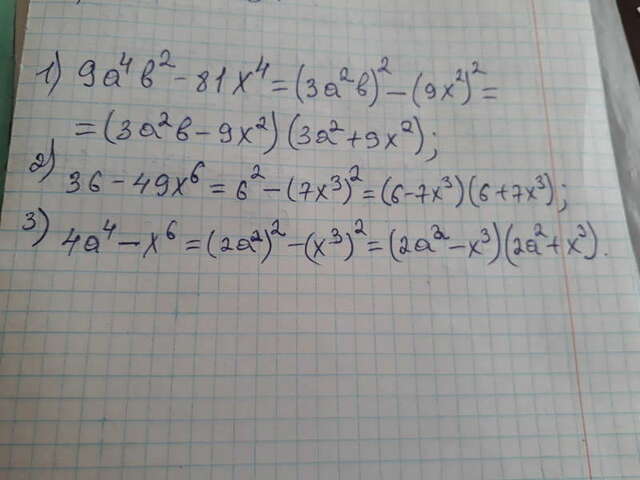 1) 9a⁴b² - 81x⁴ = (3a²b)² - (9x²)² =
= (3a²b - 9x²)(3a² + 9x²);
2) 36 - 49x⁶ = 6² - (7x³)² = (6 - 7x³)(6 + 7x³);
3) 4a⁴ - x⁶ = (2a²)² - (x³)² = (2a² - x³)(2a² + x³).